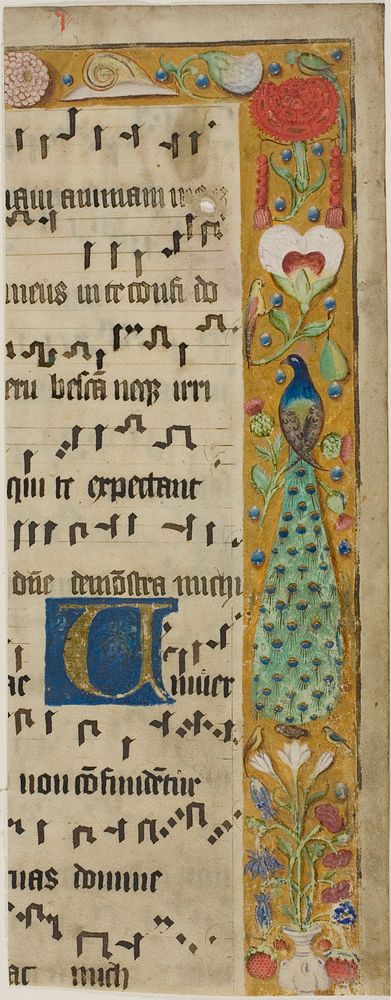 mam animam mea
meus in te confi do
eru bescā neqȝ irri
qui te expectant
dn̄e demōstra michi
Univer
non cōfundentur
uas domine
ac mich